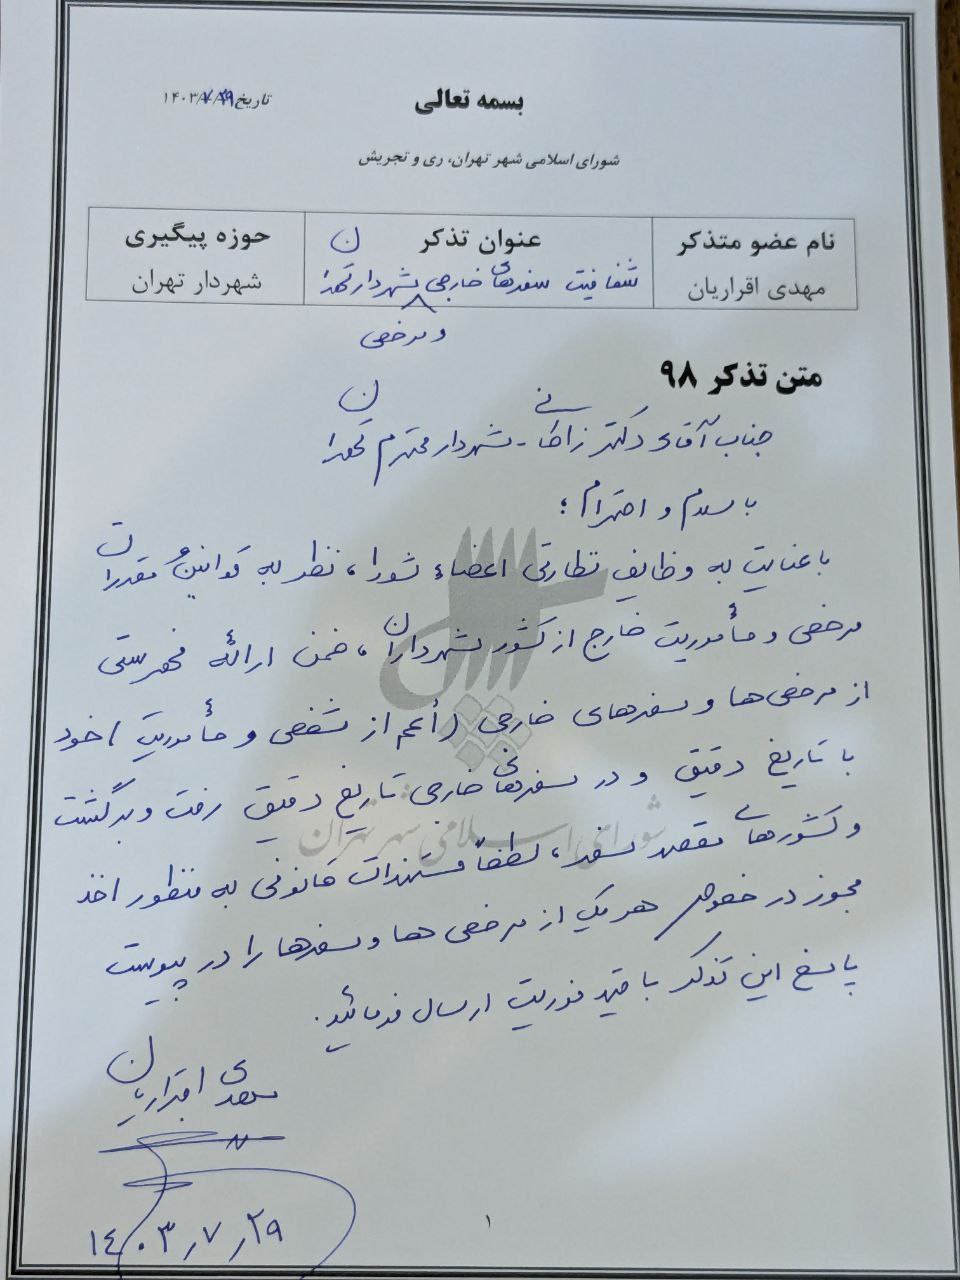 بسمه تعالی
تاریخ ۱۴۰۳/۷/۲۹
شورای اسلامی شهر تهران، ری و تجریش
نام عضو متذکر
عنوان تذکر
حوزه پیگیری
مهدی اقراریان
شفافیت سفرهای خارجی شهردار تهران
شهردار تهران
و مرخصی
متن تذکر ۹۸
جناب آقای دکتر زاکانی - شهردار محترم تهران
با سلام و احترام؛
با عنایت به وظایف نظارتی اعضاء شورا، نظر به قوانین و مقررات
مرخصی و مأموریت خارج از کشور شهرداران، ضمن ارائه فهرستی
از مرخصی‌ها و سفرهای خارجی (أعم از شخصی و مأموریت) خود
با تاریخ دقیق و در سفرهای خارجی تاریخ دقیق رفت و برگشت
و کشورهای مقصد سفر، لطفاً مستندات قانونی به منظور اخذ
مجوز در خصوص هر یک از مرخصی ها و سفرها را در پیوست
پاسخ این تذکر با قید فوریت ارسال فرمائید.
مهدی اقراریان
۱۴۰۳٫۷٫۲۹
۱
شورای اسلامی شهر تهران